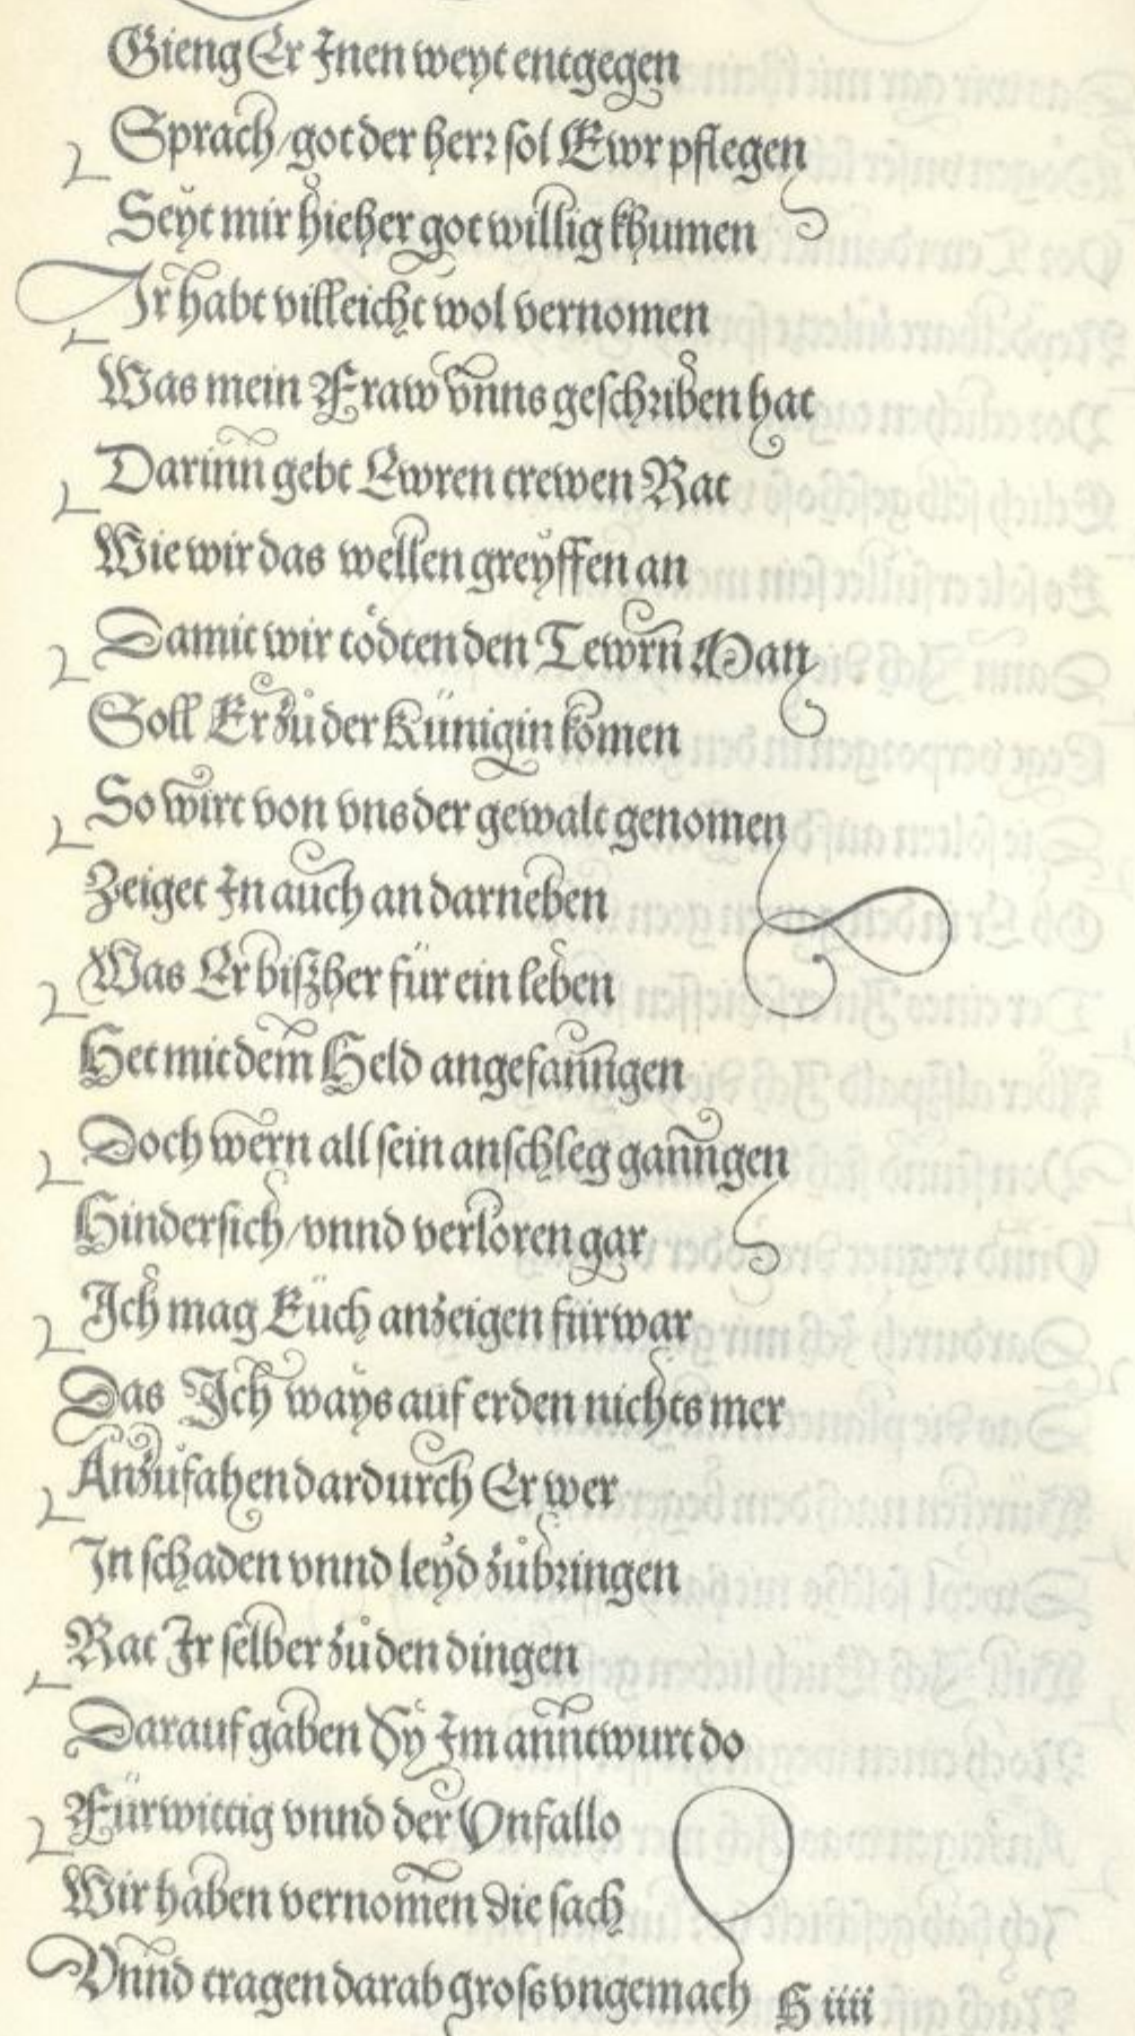 Gieng Er Jnen weyt entgegen
Sprach/got der herr sol Ewr pflegen
Seyt mir hieher got willig khumen
Jr habt villeicht wol vernomen
Was mein Fraw vnns geschriben hat
Darinn gebt Ewren trewen Rat
Wie wir das wellen greyffen an
Damit wir tödten den Tewrn Man
Soll Er zů der Künigin komen
So wirt von vns der gewalt genomen
Zeiget Jn auch an darneben
Was Er biszher für ein leben
Het mit dem Held angefanngen
Doch wern all sein anschleg ganngen
Hindersich/vnnd verloren gar
Jch mag Euch anzeigen fürwar
Das Jch ways auf erden nichts mer
Anzůfahen dardurch Er wer
Jn schaden vnnd leyd zůbringen
Rat Jr selber zů den dingen
Darauf gaben Sy Jm anntwurt do
Fürwittig vnnd der Vnfallo
Wir haben vernomen die sach
Vnnd tragen darab gross vngemach
H iiii